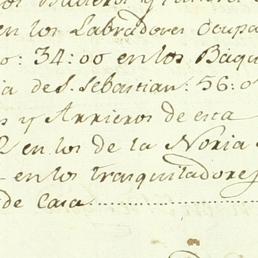 en los Labradores Ocupa
o: 34:00 en los Baqu
ia de S. Sebastian: 56:0
s y Arrieros de esta
2 en los de la Noria
en los trasquiladores
de Casa